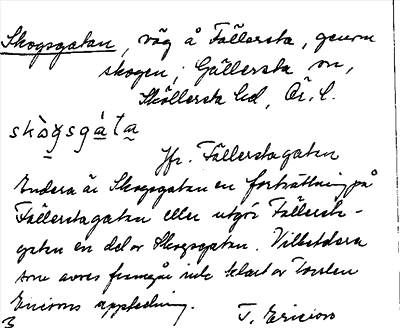 Skogsgatan, väg å Fällersta, genom
skogen; Gällersta sn,
Sköllersta hd, Ör. l.
skògsgàta
Jfr. Fällerstagatan
Endera är Skogsgatan en fortsättning på
Fällerstagatan eller utgör Fällersta-
gatan en del av Skogsgatan. Vilketdera
som avses framgår icke klart av Torsten
Ericsons uppteckning.
T. Ericson
3